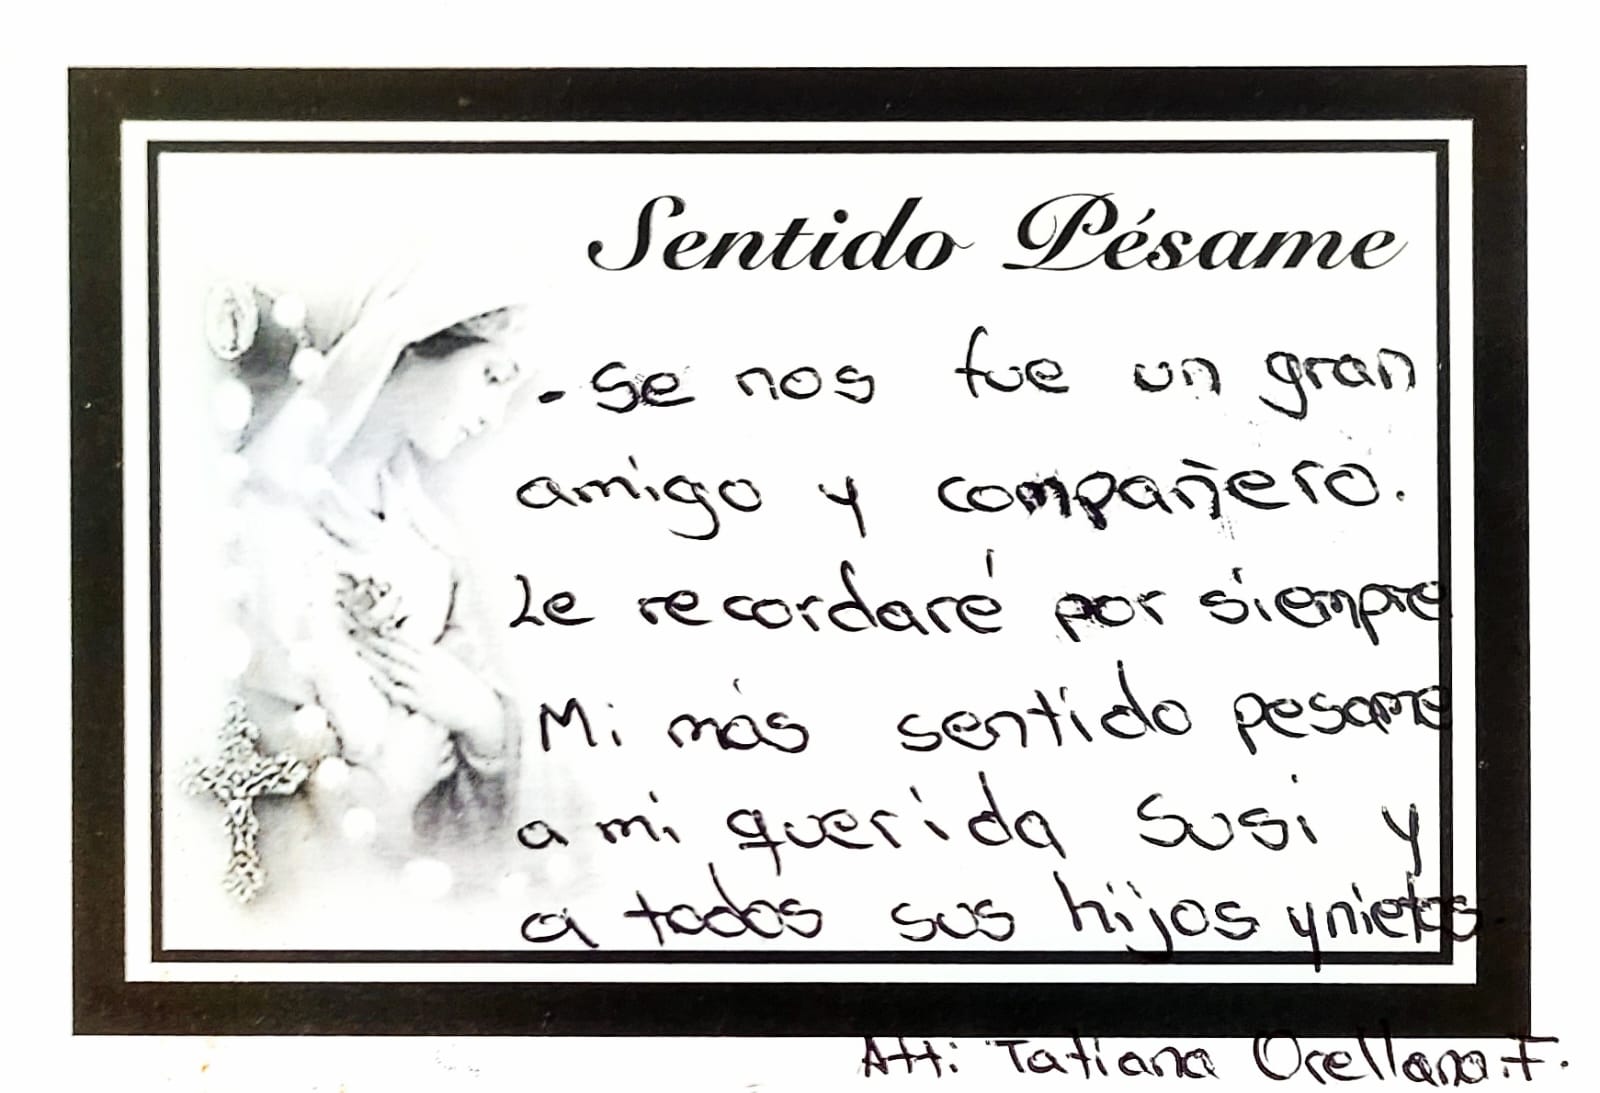 Sentido Pésame
- Se nos fue un gran
amigo y compañero.
Le recordaré por siempre
Mi más sentido pesame
a mi querida Susi y
a todos sus hijos y nietos.
Att: Tatiana Orellana.F.